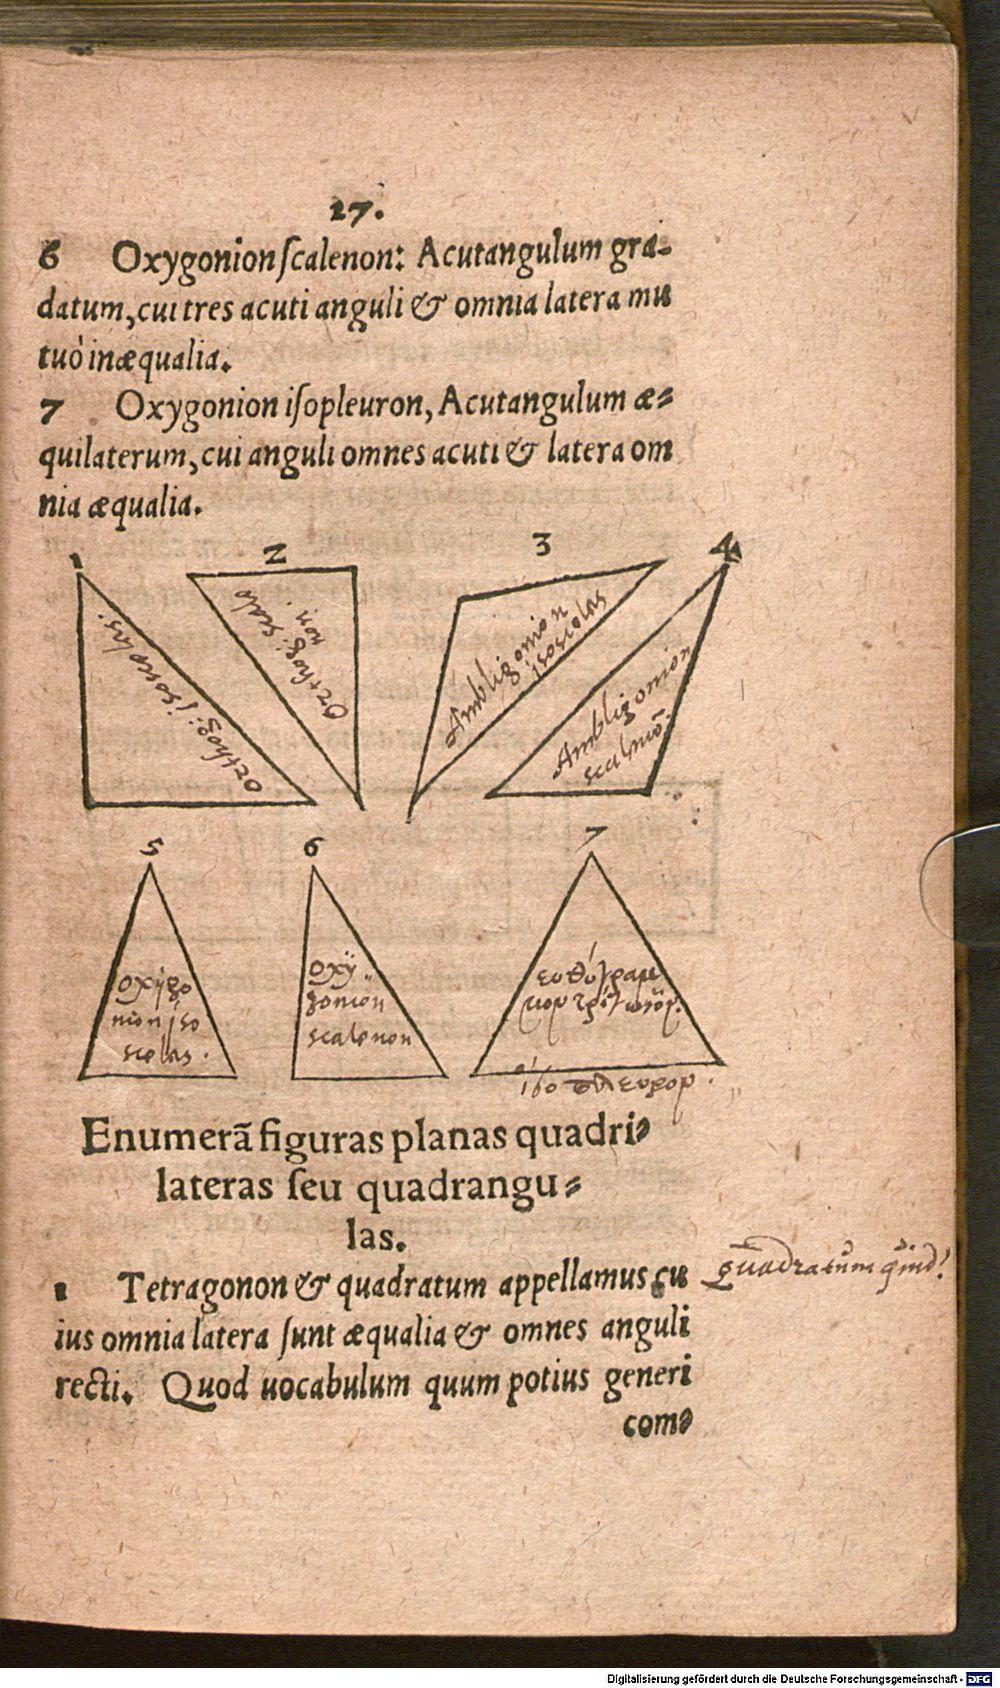 27.
6 Oxygonion ſcalenon: Acutangulum gra-
datum, cui tres acuti anguli & omnia latera mu
tuò inæqualia.
7 Oxygonion iſopleuron, Acutangulum æ-
quilaterum, cui anguli omnes acuti & latera om
nia æqualia.
1 2 3 4
orthogi isosceles.
orthogi scale
non.
Ambligonion
isoscelas
Ambligonion
scalenō.
5 6 7
oxÿgo
nion iso
scelas.
oxÿ
gonion
scalenon
ἰσόπλευρον.
Enumerã figuras planas quadri-
lateras ſeu quadrangu-
las.
1 Tetragonon & quadratum appellamus cu
ius omnia latera ſunt æqualia & omnes anguli
recti. Quod uocabulum quum potius generi
com-
Quadratum quid?
Digitalisierung gefördert durch die Deutsche Forschungsgemeinschaft - DFG